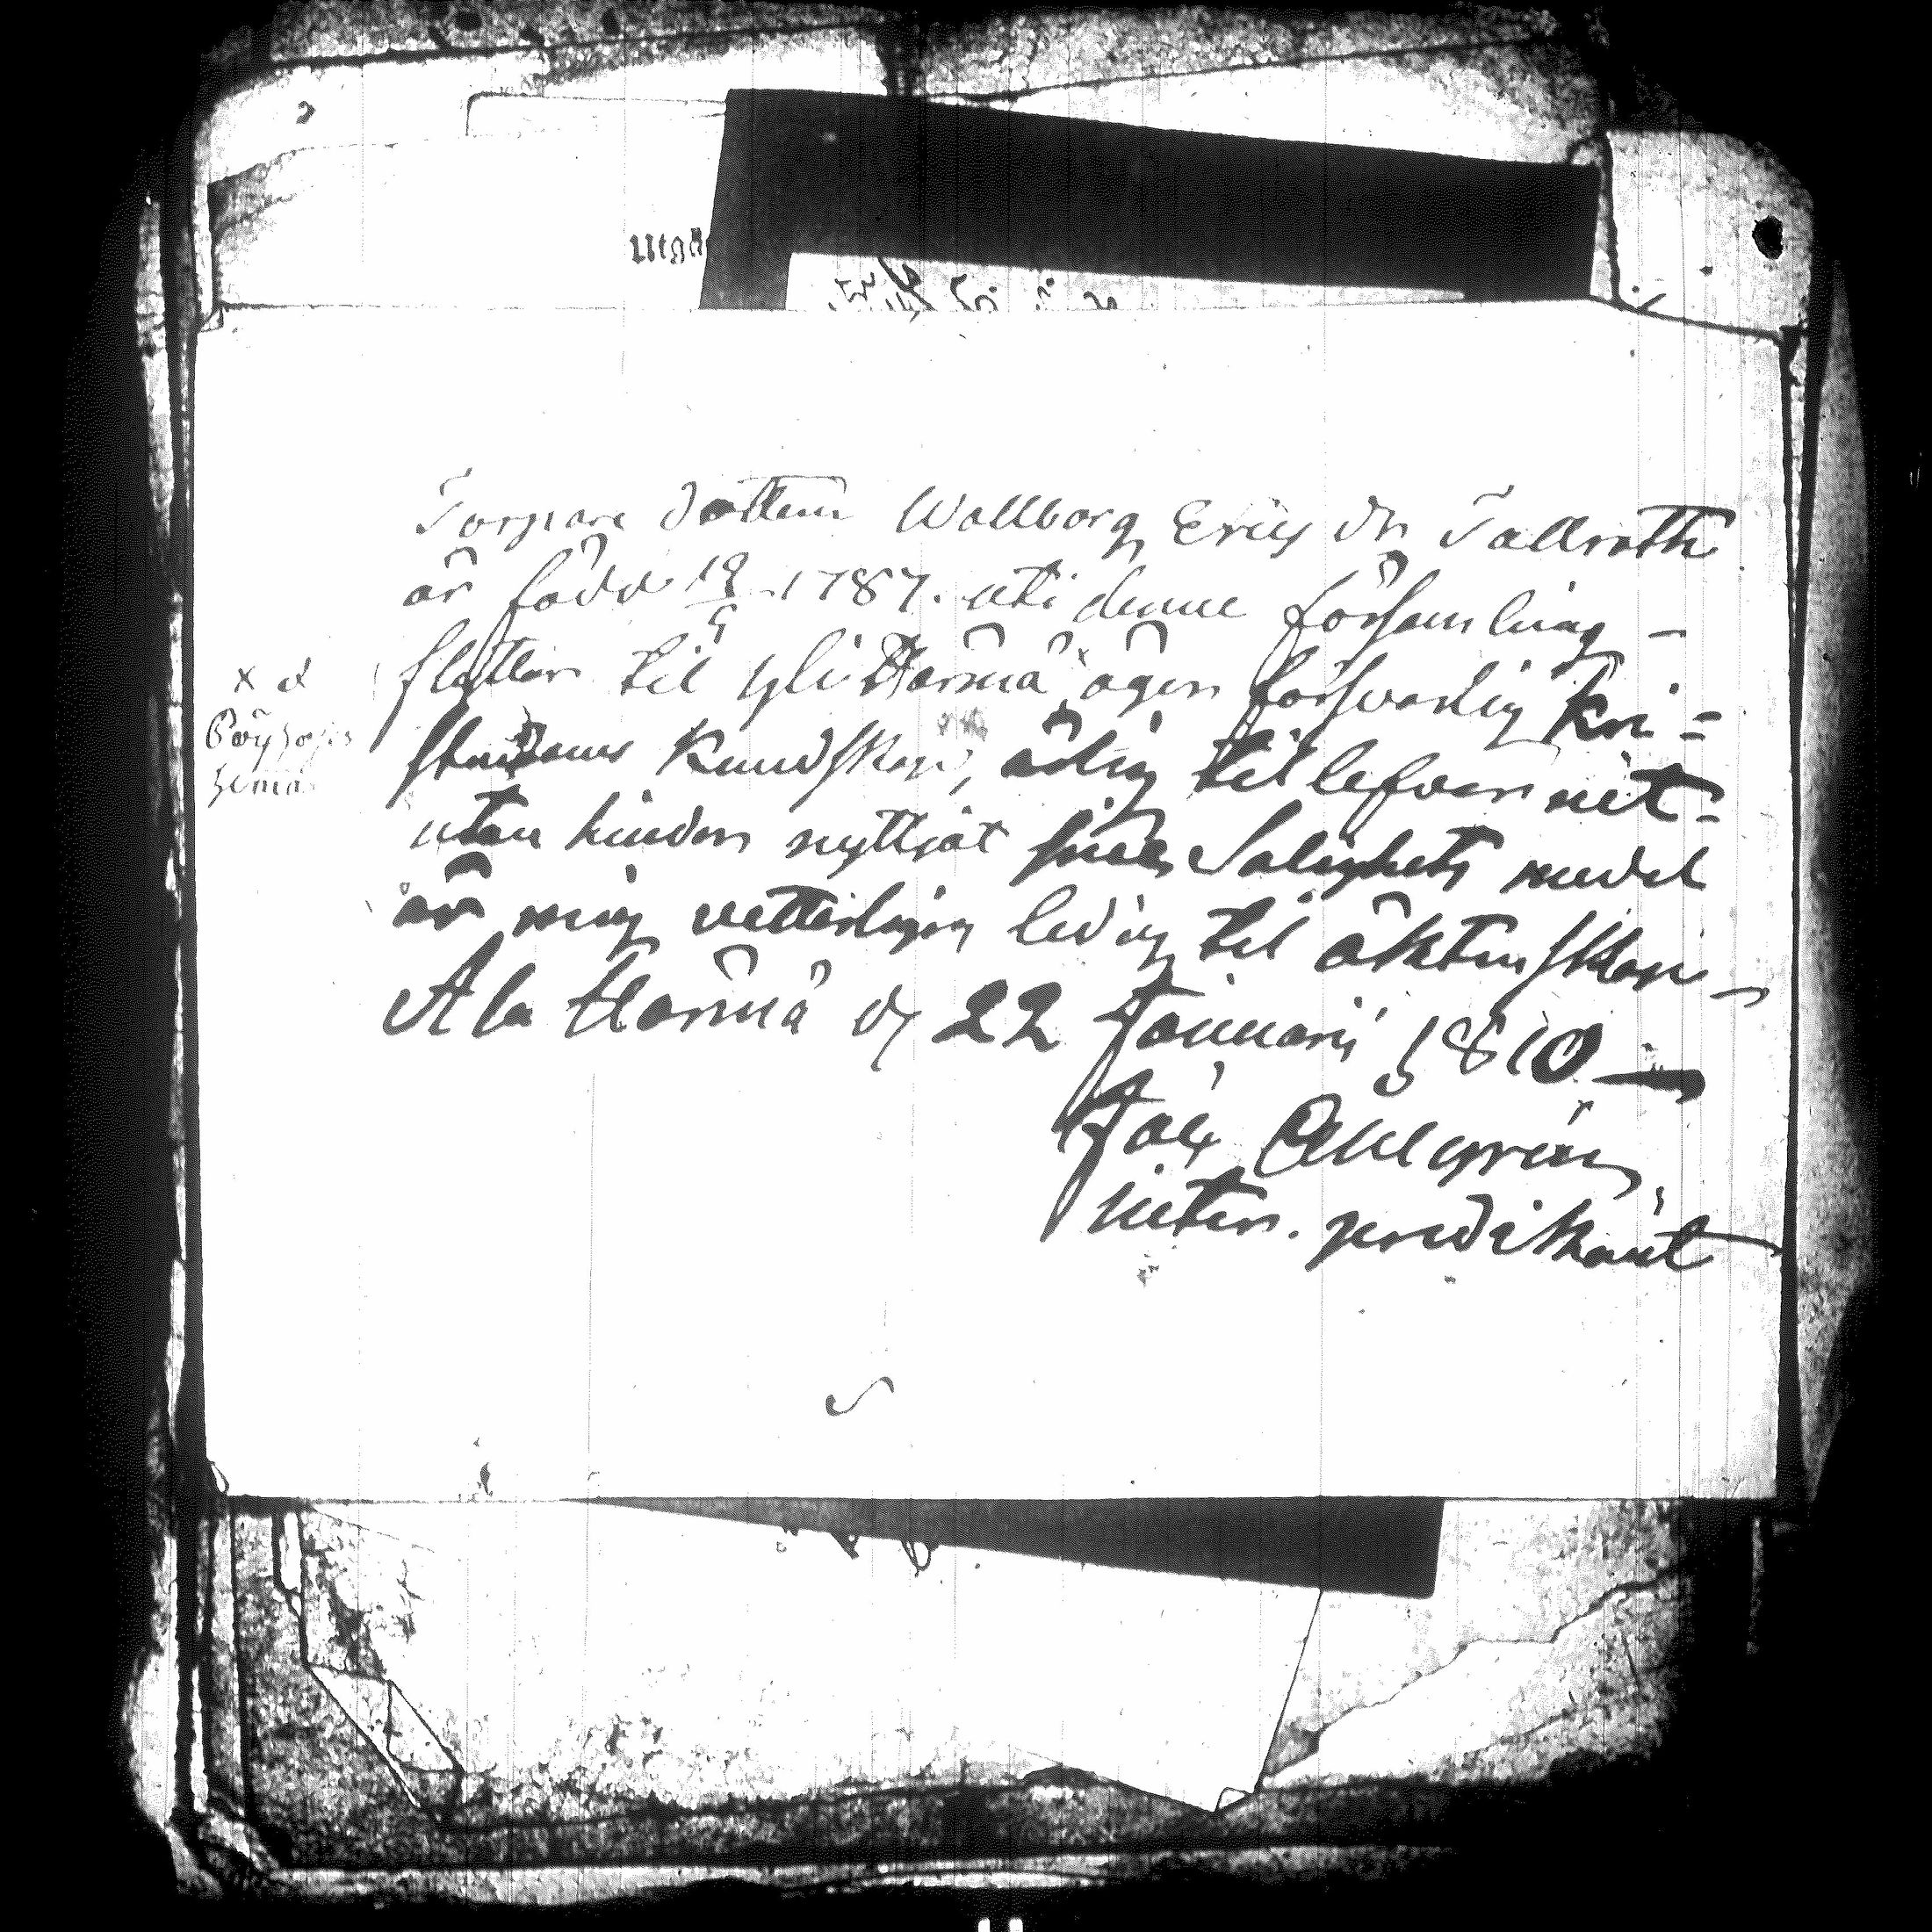 Torpare dottern Wallborg Erics dr Tallroth
är född 18/5 1787. uti denne församling –
flyttar til yli Härmä x äger försvarlig kri=
stendoms Kundskap, ärlig til lefvernet=
utan hinder nyttjat sine Salighets medel
är mig vetterligen ledig til äktenskap –
Ala Härmä d 22 Januarii 1810 –
Joh Åhlgren
inter. predikant
x d